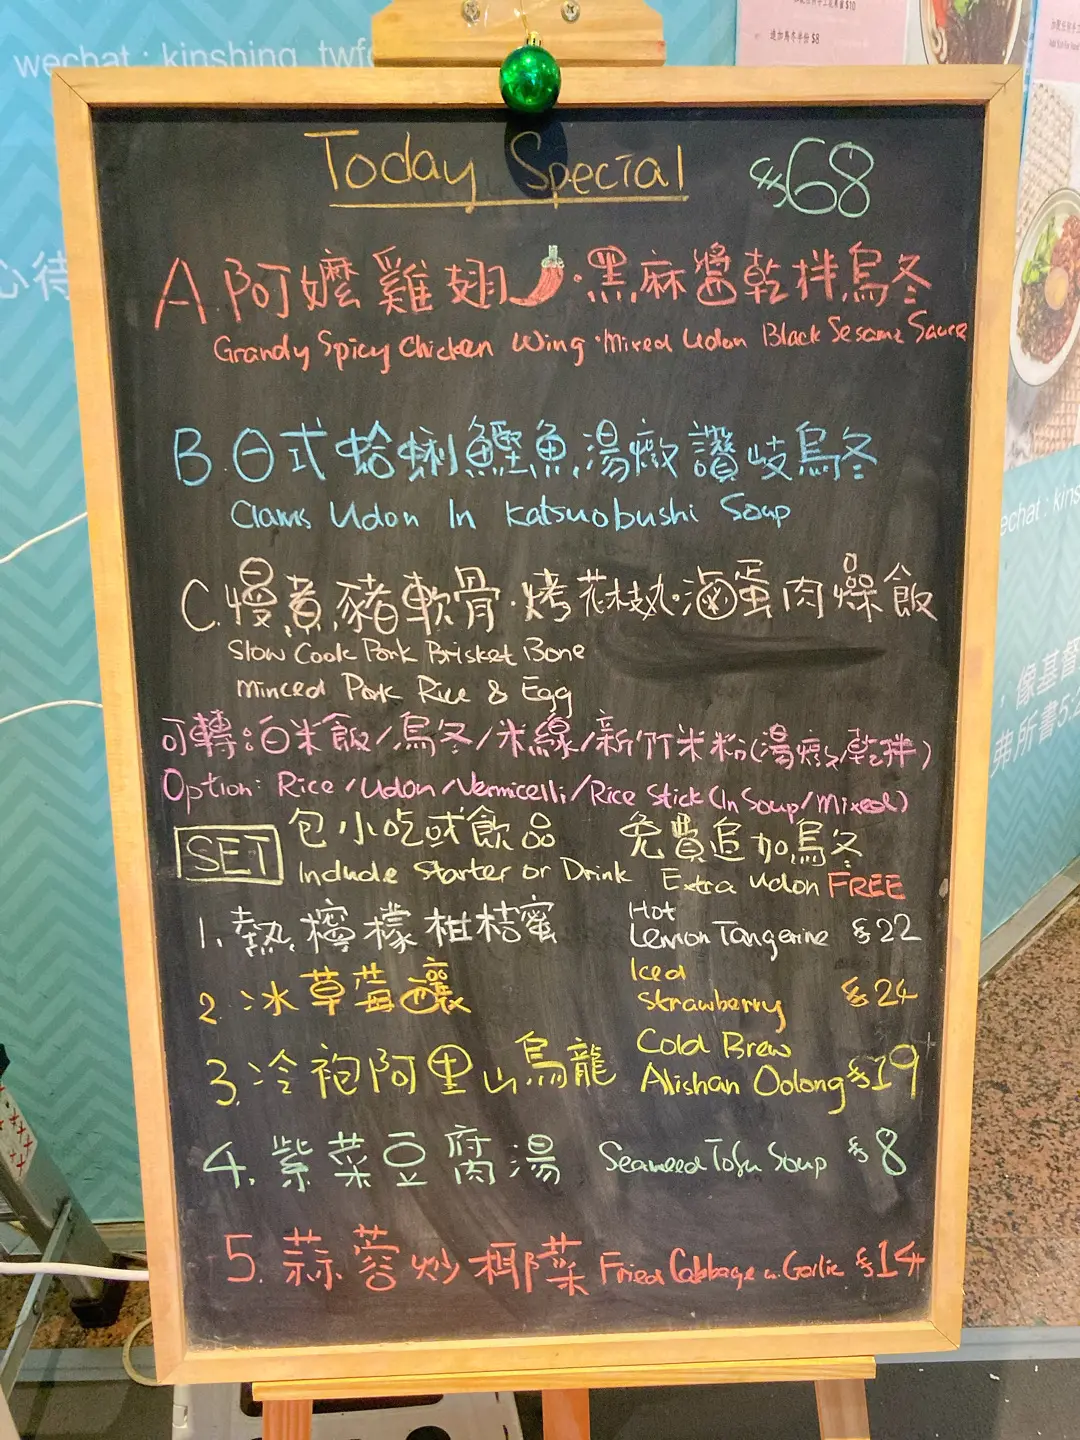 wechat : kinshing_twf
$10
追加烏冬半份 $8
Today Special $68
A.阿嬤雞翅·黑麻醬乾拌烏冬
Grandy Spicy Chicken Wing·Mixed Udon Black Sesame Sauce
B.日式蛤蜊鰹魚湯燉讚岐烏冬
Clams Udon In Katsuobushi Soup
C.慢煮豬軟骨·烤花枝丸·滷蛋肉燥飯
Slow Cook Pork Brisket Bone
Minced Pork Rice & Egg
可轉:白米飯/烏冬/米線/新竹米粉(湯燉/乾拌)
Option: Rice/Udon/Vermicelli/Rice Stick (In Soup/Mixed)
SET 包小吃或飲品 免費追加烏冬
Include Starter or Drink Extra Udon FREE
1.熱檸檬柑桔蜜 Hot Lemon Tangerine $22
2.冰草莓釀 Iced Strawberry $24
3.冷袍阿里山烏龍 Cold Brew Alishan Oolong $19
4.紫菜豆腐湯 Seaweed Tofu Soup $8
5.蒜蓉炒椰菜 Fried Cabbage w. Garlic $14
心待
echat : kins
，像基督
弗所書5:2